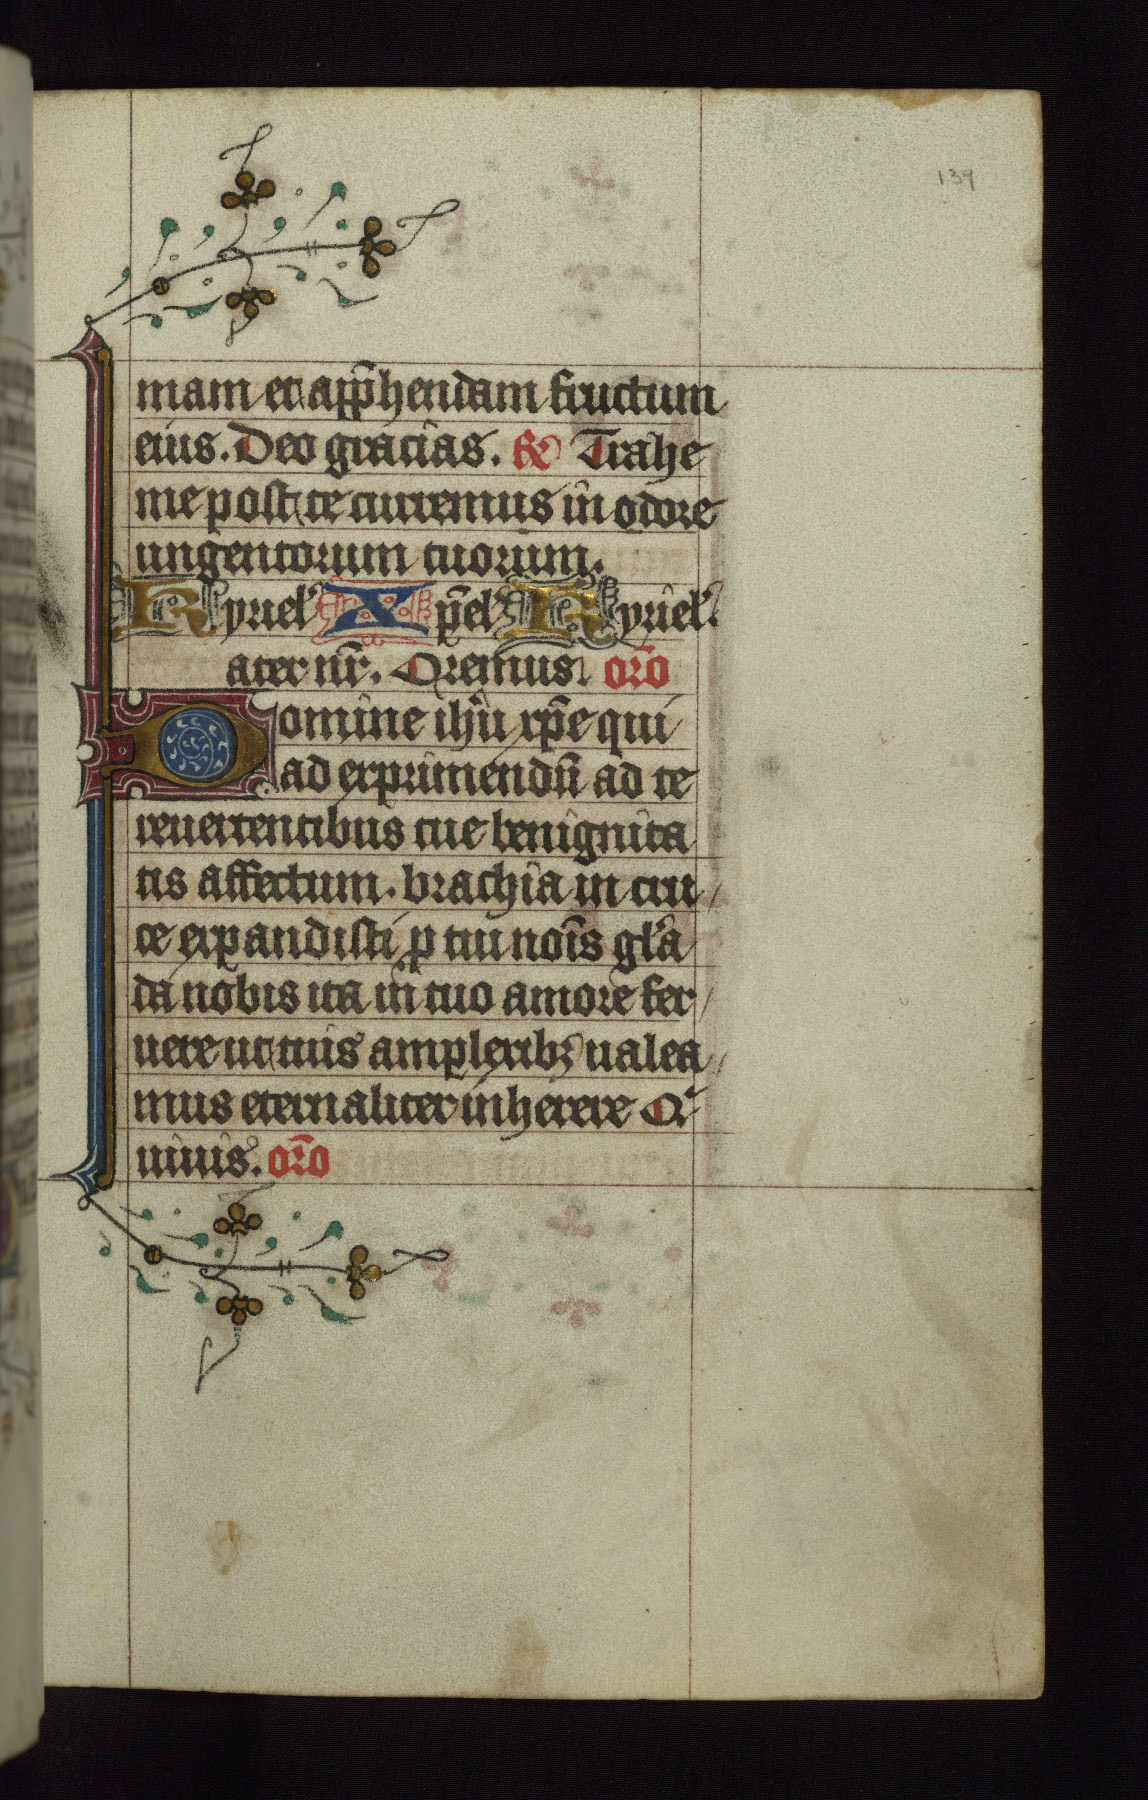 139
mam et app̄hendam fructum
eius. Deo gracias. R Trahe
me post te curremus in odore
ungentorum tuorum.
Kyriel' Xp̄el' Kyriel'.
ater nr̄. Oremus. or̄o
Domine ihū xp̄e qui
ad exprimendū ad te
reuertentibus tue benignita
tis affectum. brachia in cru
ce expandisti p tui noīs gl'a
da nobis ita in tuo amore fer
uere ut tuis amplexibꝫ ualea
mus eternaliter inherere Q'
uiuis. or̄o